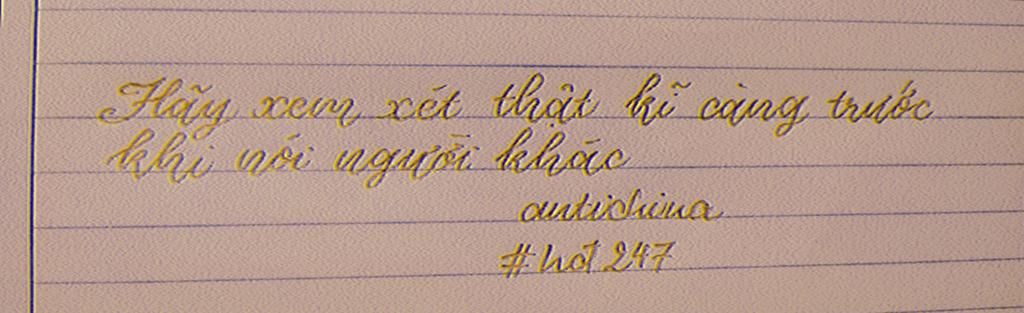 Hãy xem xét thật kĩ càng trước
khi nói người khác
antichina
#hot 247